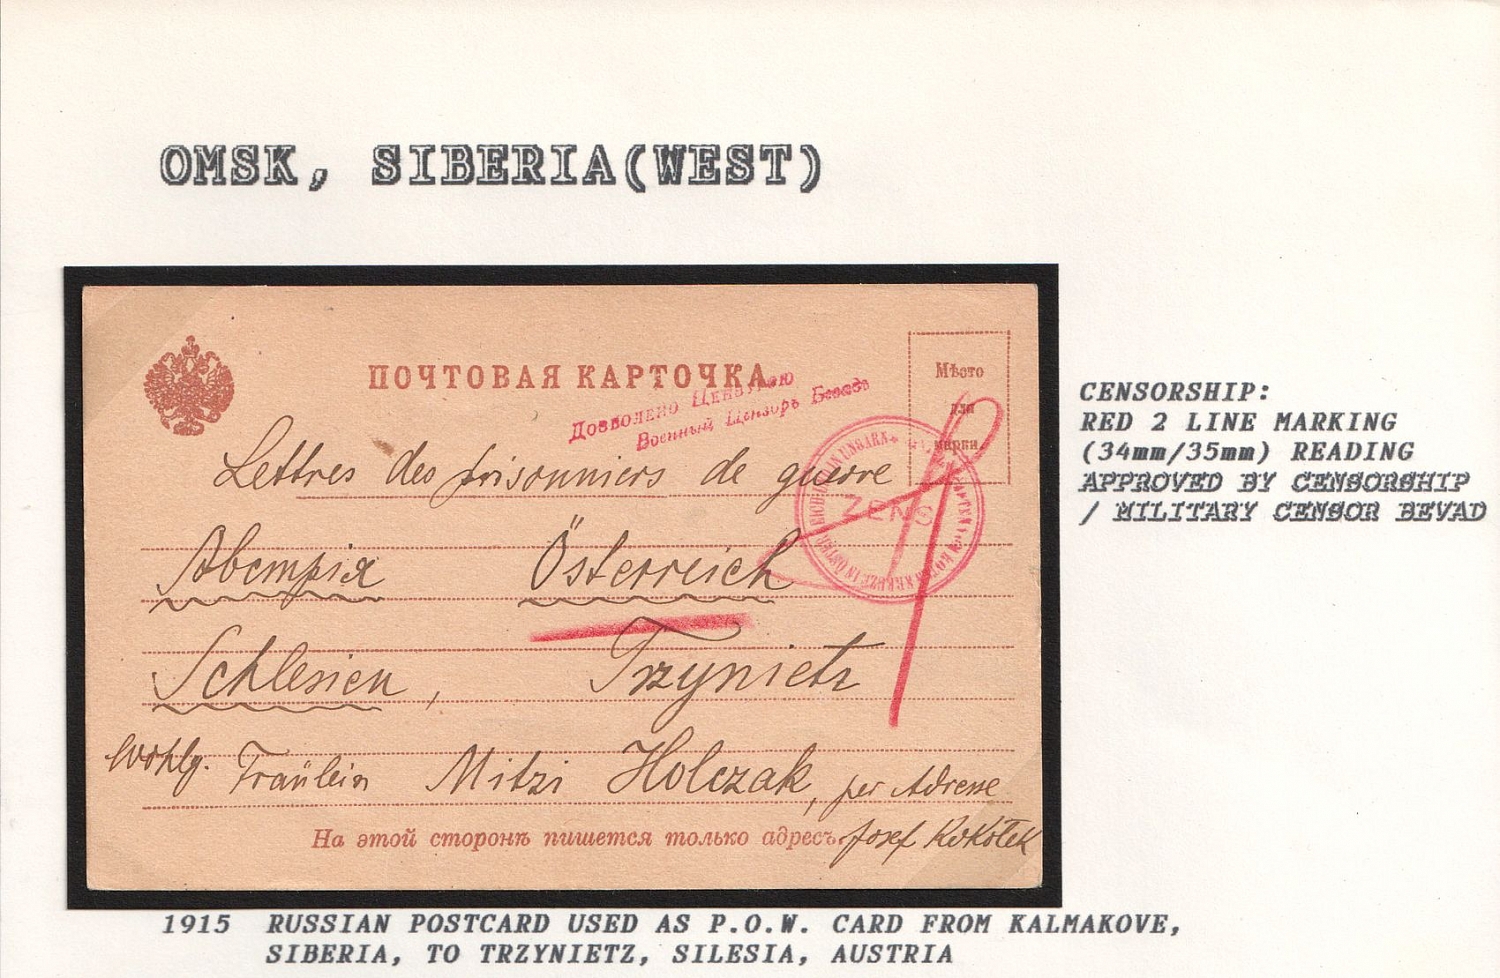 OMSK, SIBERIA(WEST)
ПОЧТОВАЯ КАРТОЧКА
Дозволено Цензурою
Военный Цензоръ Бевадъ
Мѣсто
для
марки.
Lettres des prisonniers de guerre
ZENS
Австрія Österreich
Schlesien, Trzynietz
Wohlg. Fräulein Mitzi Holczak, per Adresse
На этой сторонѣ пишется только адресъ. Josef Kokotek
CENSORSHIP:
RED 2 LINE MARKING
(34mm/35mm) READING
APPROVED BY CENSORSHIP
/ MILITARY CENSOR BEVAD
1915 RUSSIAN POSTCARD USED AS P.O.W. CARD FROM KALMAKOVE,
SIBERIA, TO TRZYNIETZ, SILESIA, AUSTRIA